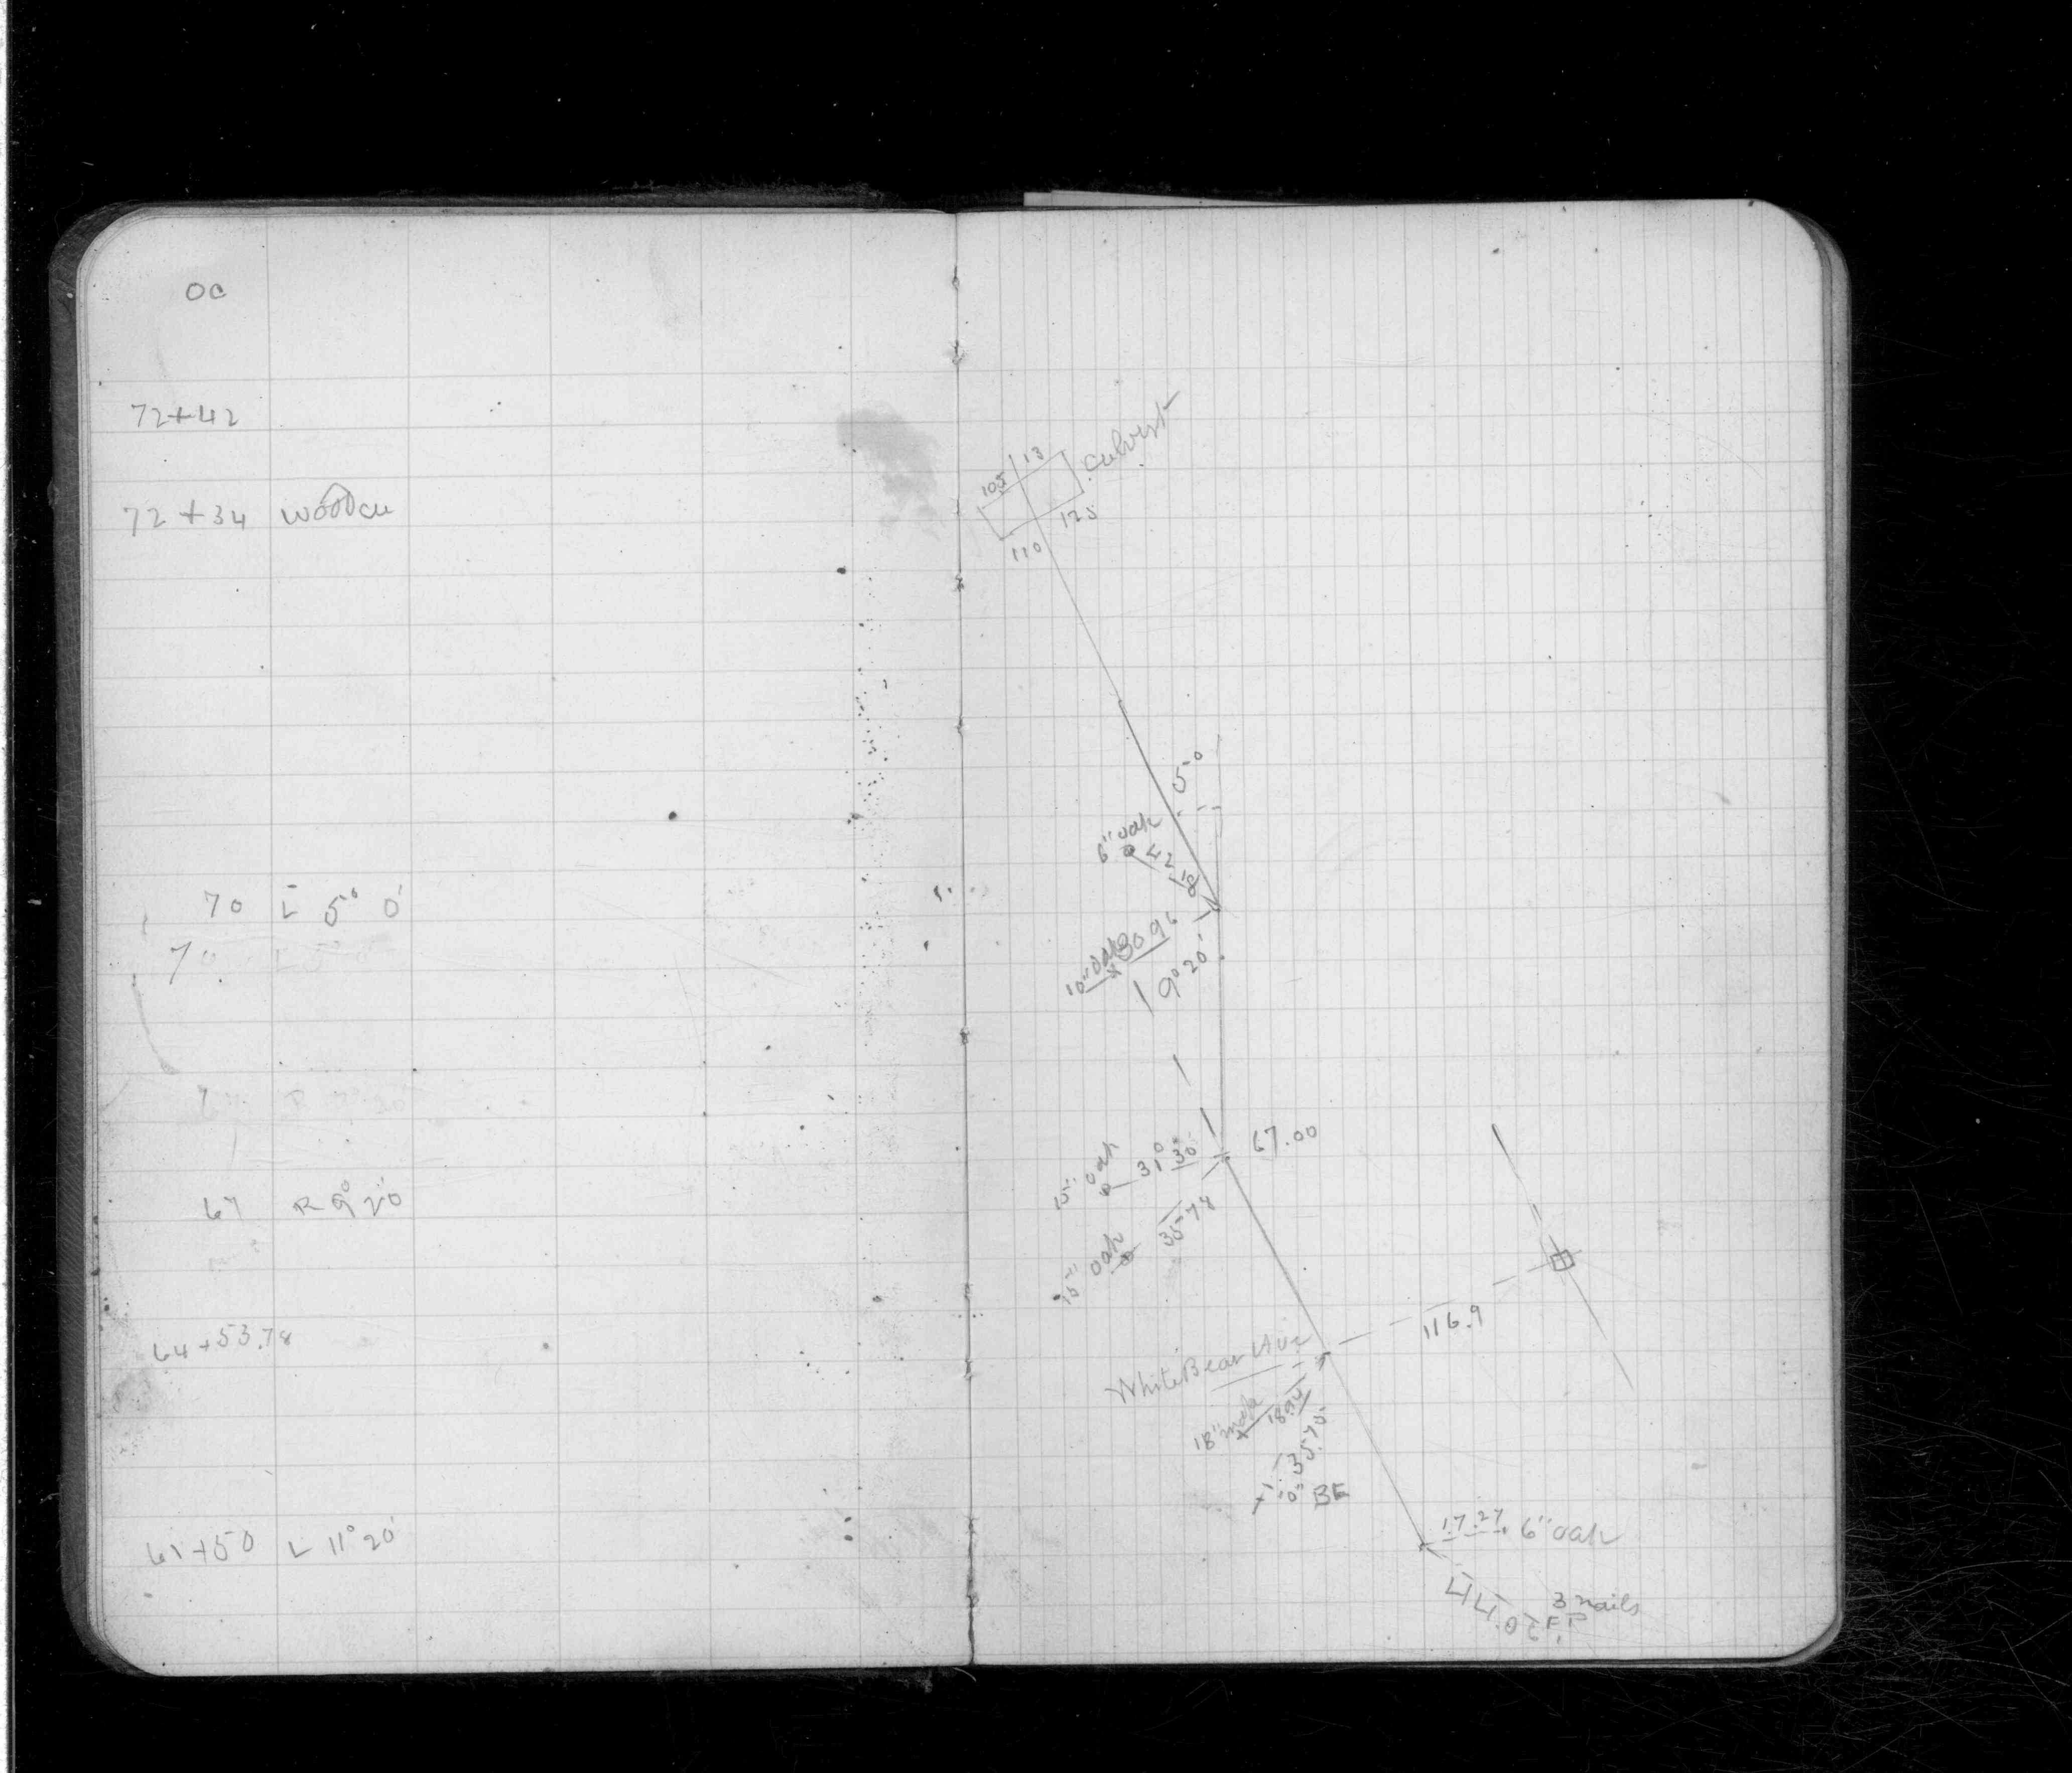 OC
72+42
72+34 wooden
70 L 5° 0'
70
67 R 9° 20'
64+53.78
61+50 L 11° 20'
culvert
13
105
125
110
5°0
6" oak
42
10" oak 30 96
9° 20'
67.00
10" oak 31° 30
10" oak 35 78
116.9
White Bear Ave
18" 18.94
35.75
10" BE
17.27 6" oak
44.06
3 nails